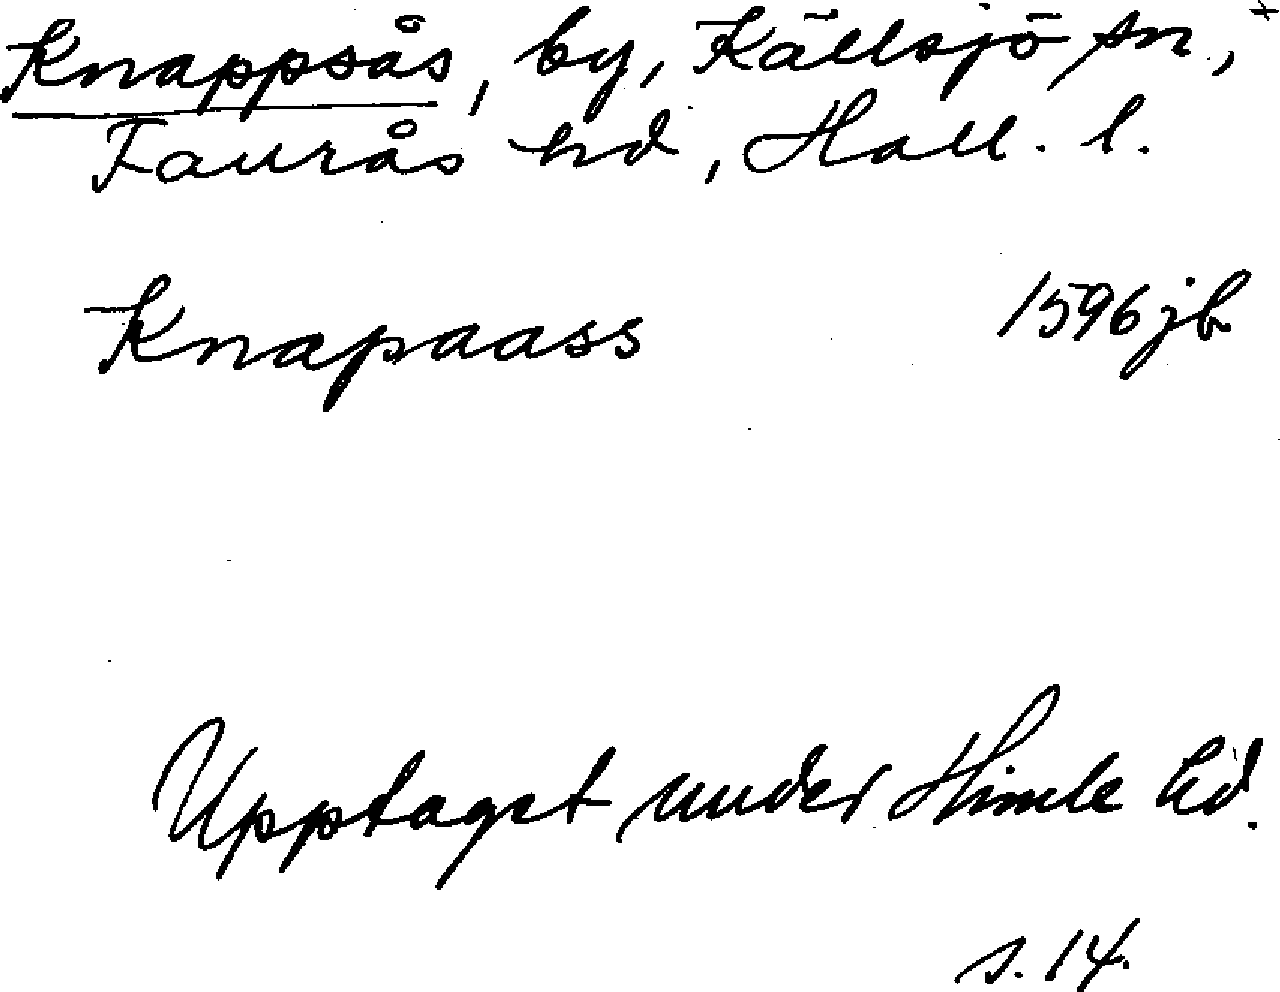 Knappsås, by, Källsjö sn, +
Faurås hd, Hall. l.
Knapaass 1596 jb
Upptaget under Himle hd.
s. 14.